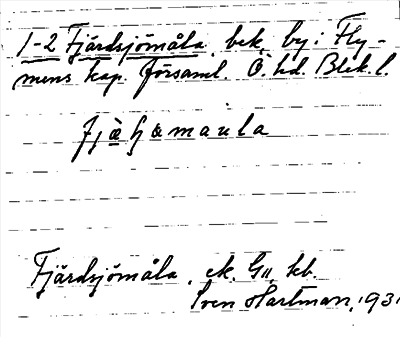 1-2 Fjärdsjömåla, bek. by i Fly-
mens kap. församl. Ö. hd. Blek. l.
Fjärdsjömåla, ek. G11, kb.
Sven Hartman, 1931